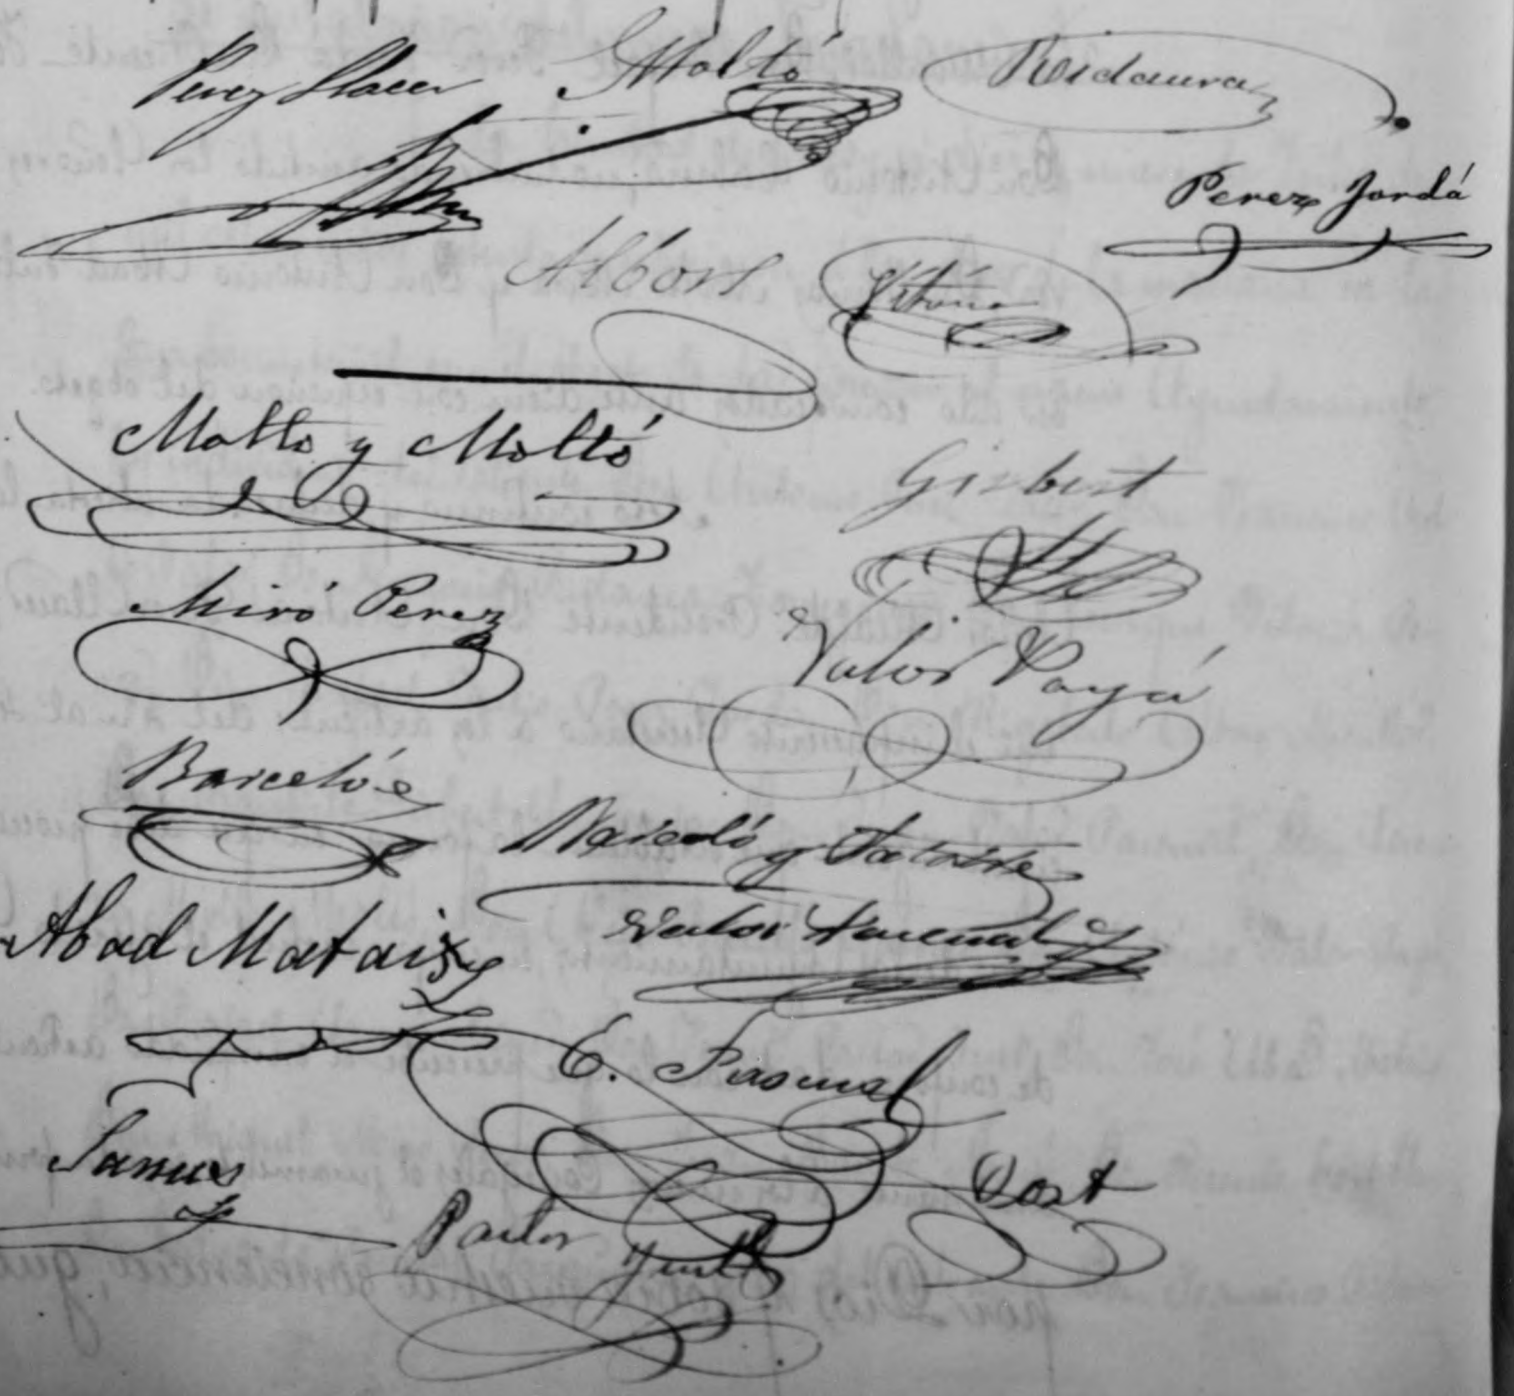 Perez Llacer Moltó Ridaura
Perez Jordá
Albors Vitoria
Moltó y Moltó
Gisbert
Miró Perez
Valor Payá
Barceló
Barceló y
Abad Mataix
Valor
E. Pascual
Sanus
Post
Pastor